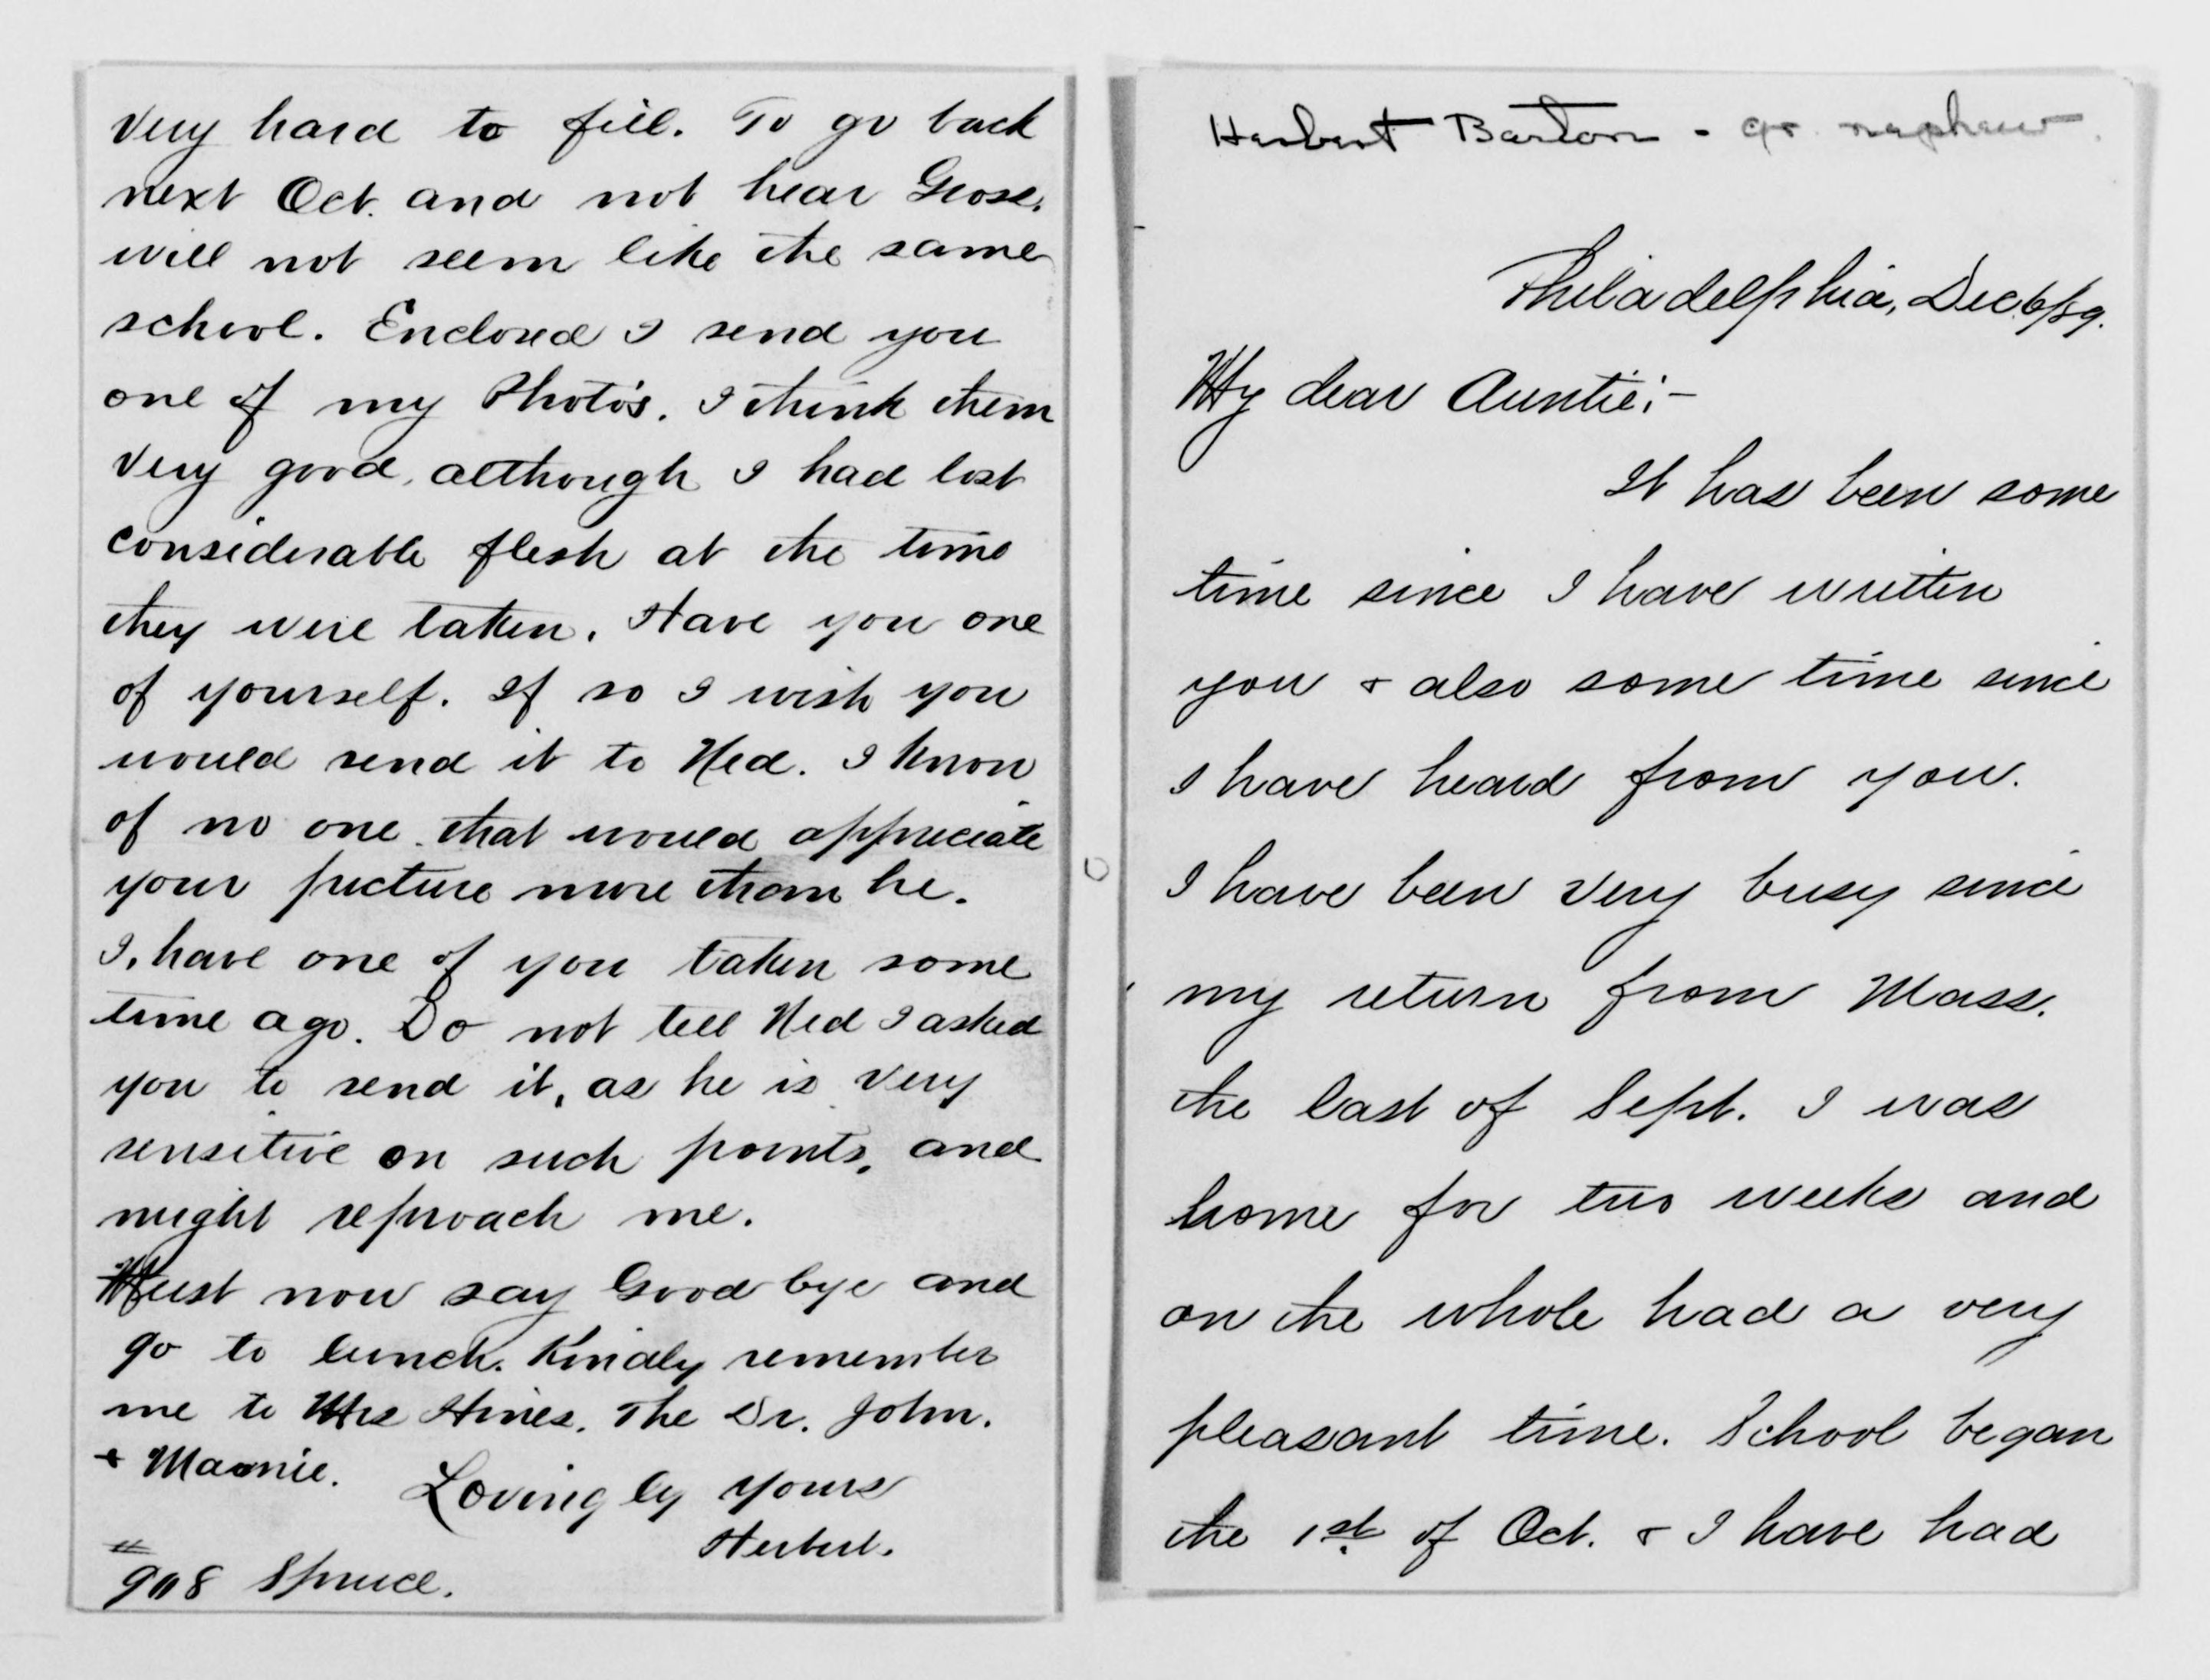 very hard to fill. To go back
next Oct. and not hear Gross,
will not seem like the same
school. Enclosed I send you
one of my Photo's. I think them
very good, although I had lost
considerable flesh at the time
they were taken. Have you one
of yourself. If so I wish you
would send it to Ned. I know
of no one that would appreciate
your picture more than he.
I have one of you taken some
time ago. Do not tell Ned I asked
you to send it, as he is very
sensitive on such points, and
might reproach me.
Must now say Good bye and
go to lunch. Kindly remember
me to Mrs Hines. The Dr. John.
+ Mamie.
Lovingly yours
Herbert.
908 Spruce.
Herbert Barton - gr. nephew.
Philadelphia, Dec. 6/89.
My dear Auntie:-
It has been some
time since I have written
you & also some time since
I have heard from you.
I have been very busy since
my return from Mass.
the last of Sept. I was
home for two weeks and
on the whole had a very
pleasant time. School began
the 1st of Oct. & I have had